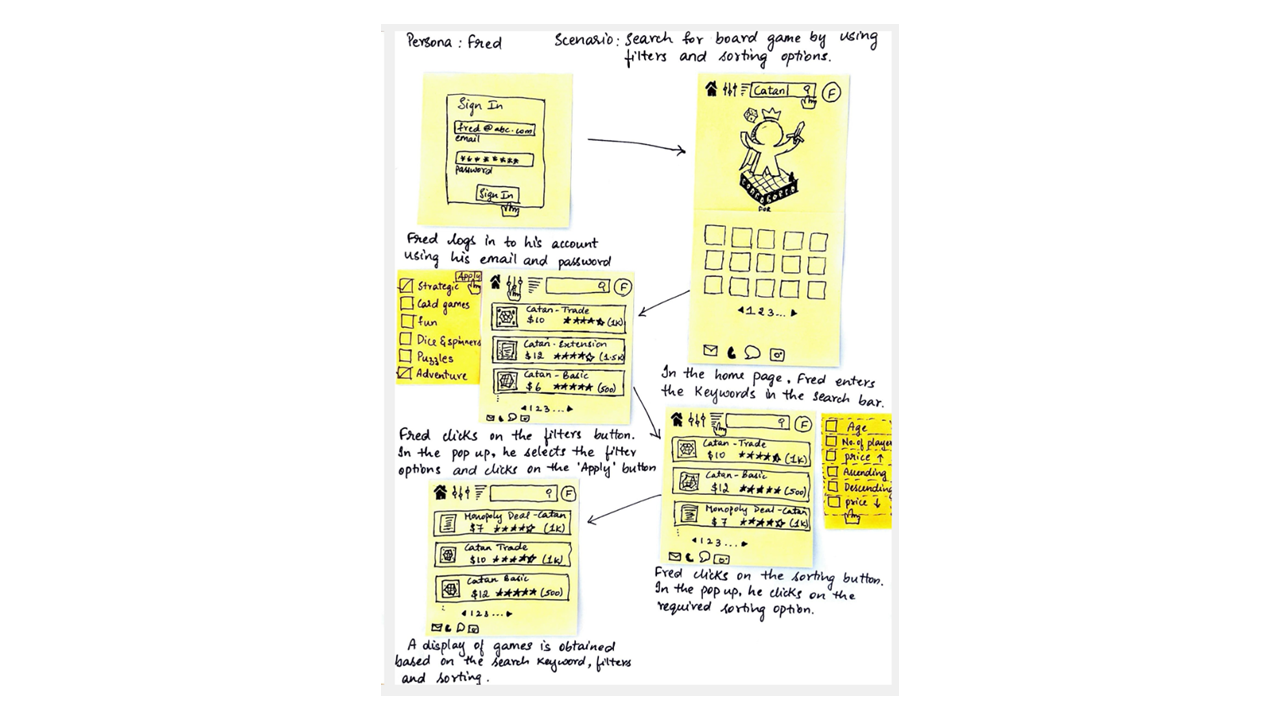 Persona : Fred
Scenario: Search for board game by using
filters and sorting options.
Sign In
fred@abc.com
email
********
Password
Sign In
Fred logs in to his account
using his email and password
Catan
F
1 2 3 ...
In the home page, Fred enters
the Keywords in the search bar.
Apply
Strategic
Card games
fun
Dice & spinners
Puzzles
Adventure
F
Catan - Trade
$10 ★★★★☆ (1K)
Catan - Extension
$12 ★★★★☆ (1.5K)
Catan - Basic
$6 ★★★★★ (500)
1 2 3 ...
Fred clicks on the filters button.
In the pop up, he selects the filter
options and clicks on the 'Apply' button
F
Catan - Trade
$10 ★★★★☆ (1K)
Catan - Basic
$12 ★★★★★ (500)
Monopoly Deal - Catan
$7 ★★★★☆ (1K)
1 2 3 ...
Age
No. of player
price ↑
Ascending
Descending
price ↓
Fred clicks on the sorting button.
In the pop up, he clicks on the
required sorting option.
F
Monopoly Deal - Catan
$7 ★★★★☆ (1K)
Catan Trade
$10 ★★★★☆ (1K)
Catan Basic
$12 ★★★★★ (500)
1 2 3 ...
A display of games is obtained
based on the search keyword, filters
and sorting.